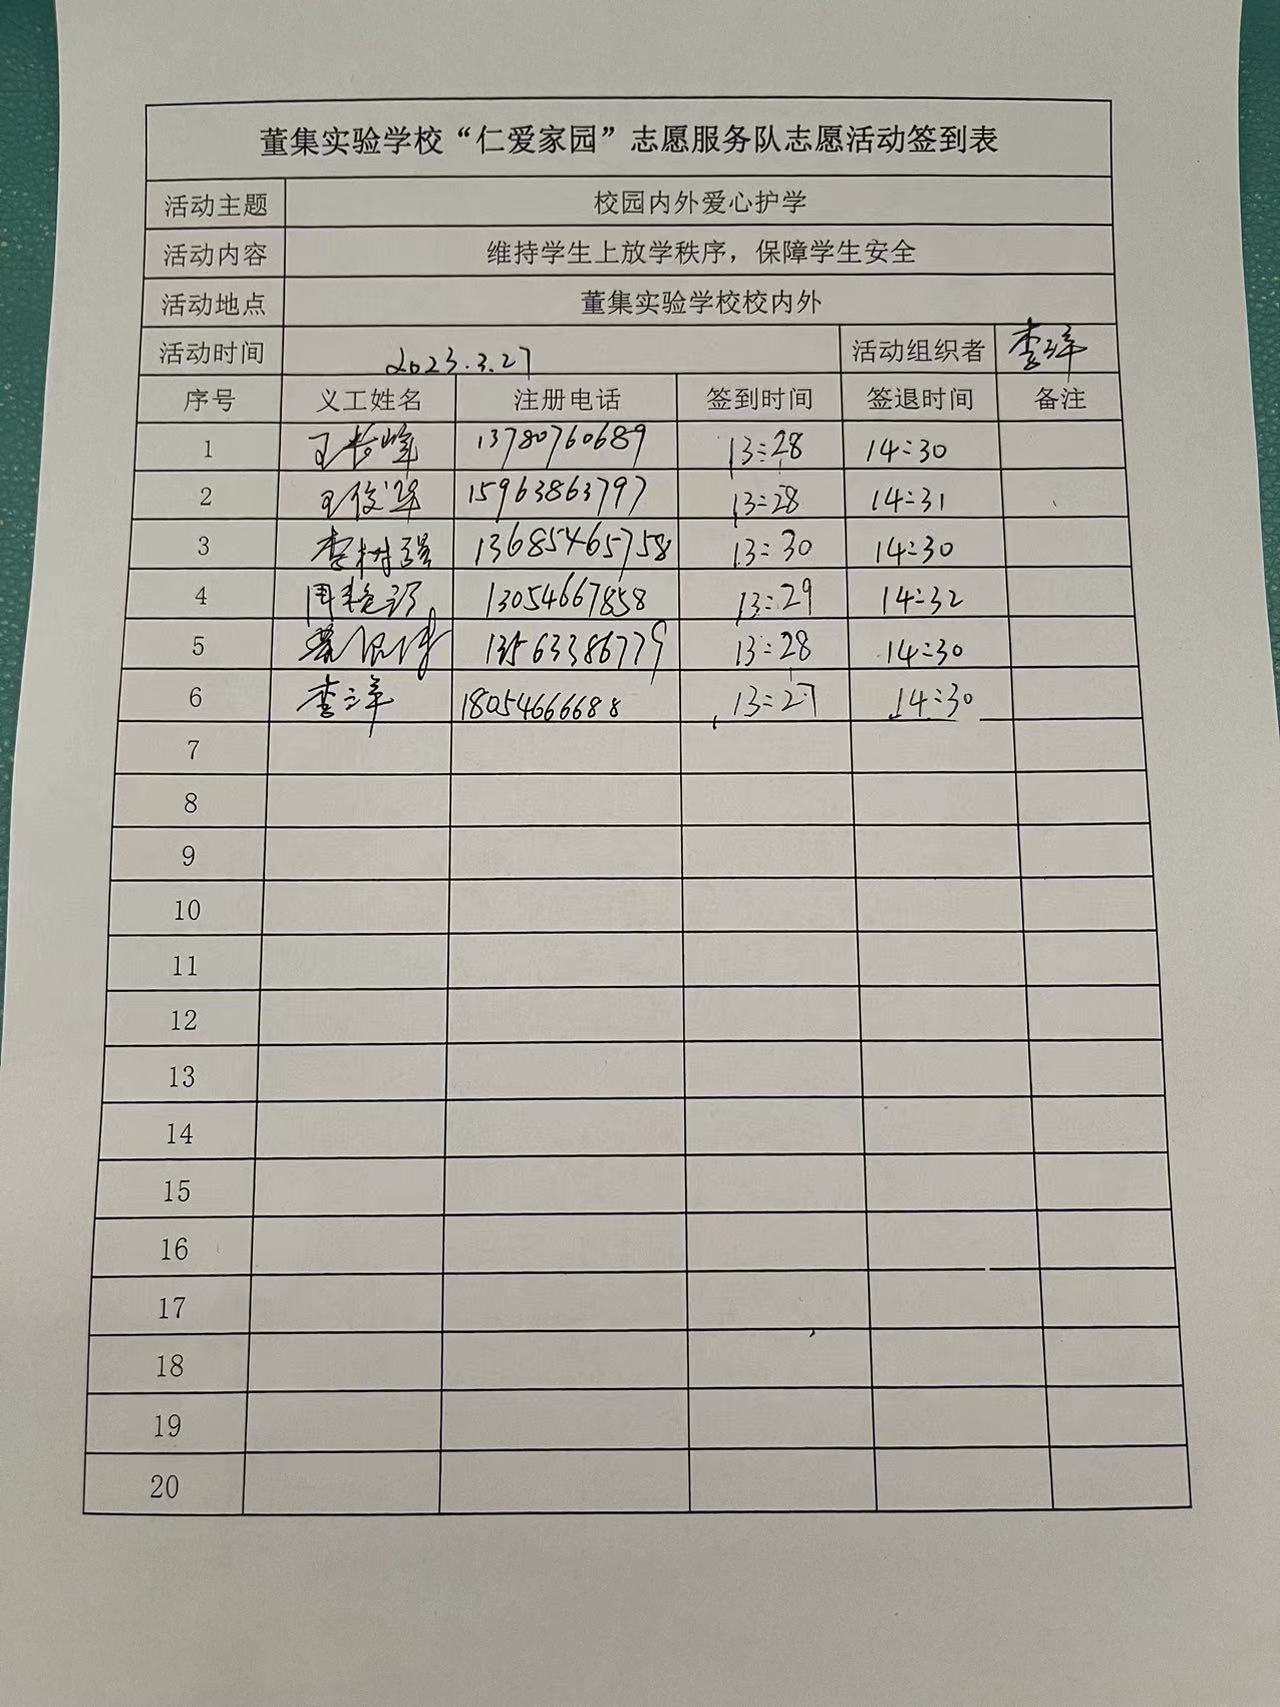 董集实验学校“仁爱家园”志愿服务队志愿活动签到表
活动主题 校园内外爱心护学
活动内容 维持学生上放学秩序，保障学生安全
活动地点 董集实验学校校内外
活动时间 2023.3.27 活动组织者 李洋
序号 义工姓名 注册电话 签到时间 签退时间 备注
1 王长峰 13780760689 13:28 14:30
2 王俊华 15963863797 13:28 14:31
3 李树强 13685465758 13:30 14:30
4 周 13054667858 13:29 14:32
5 13563386779 13:28 14:30
6 李洋 18054666688 13:27 14:30
7
8
9
10
11
12
13
14
15
16
17
18
19
20